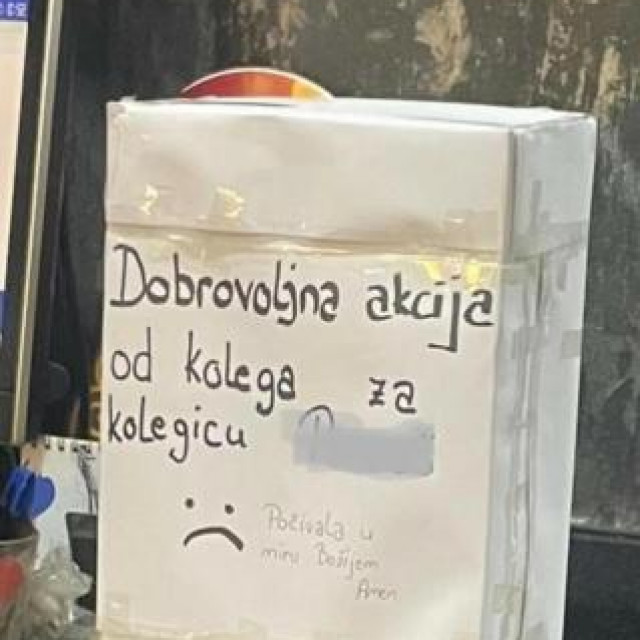 Dobrovoljna akcija
od kolega za
kolegicu
Počivala u
miru Božijem
Amen